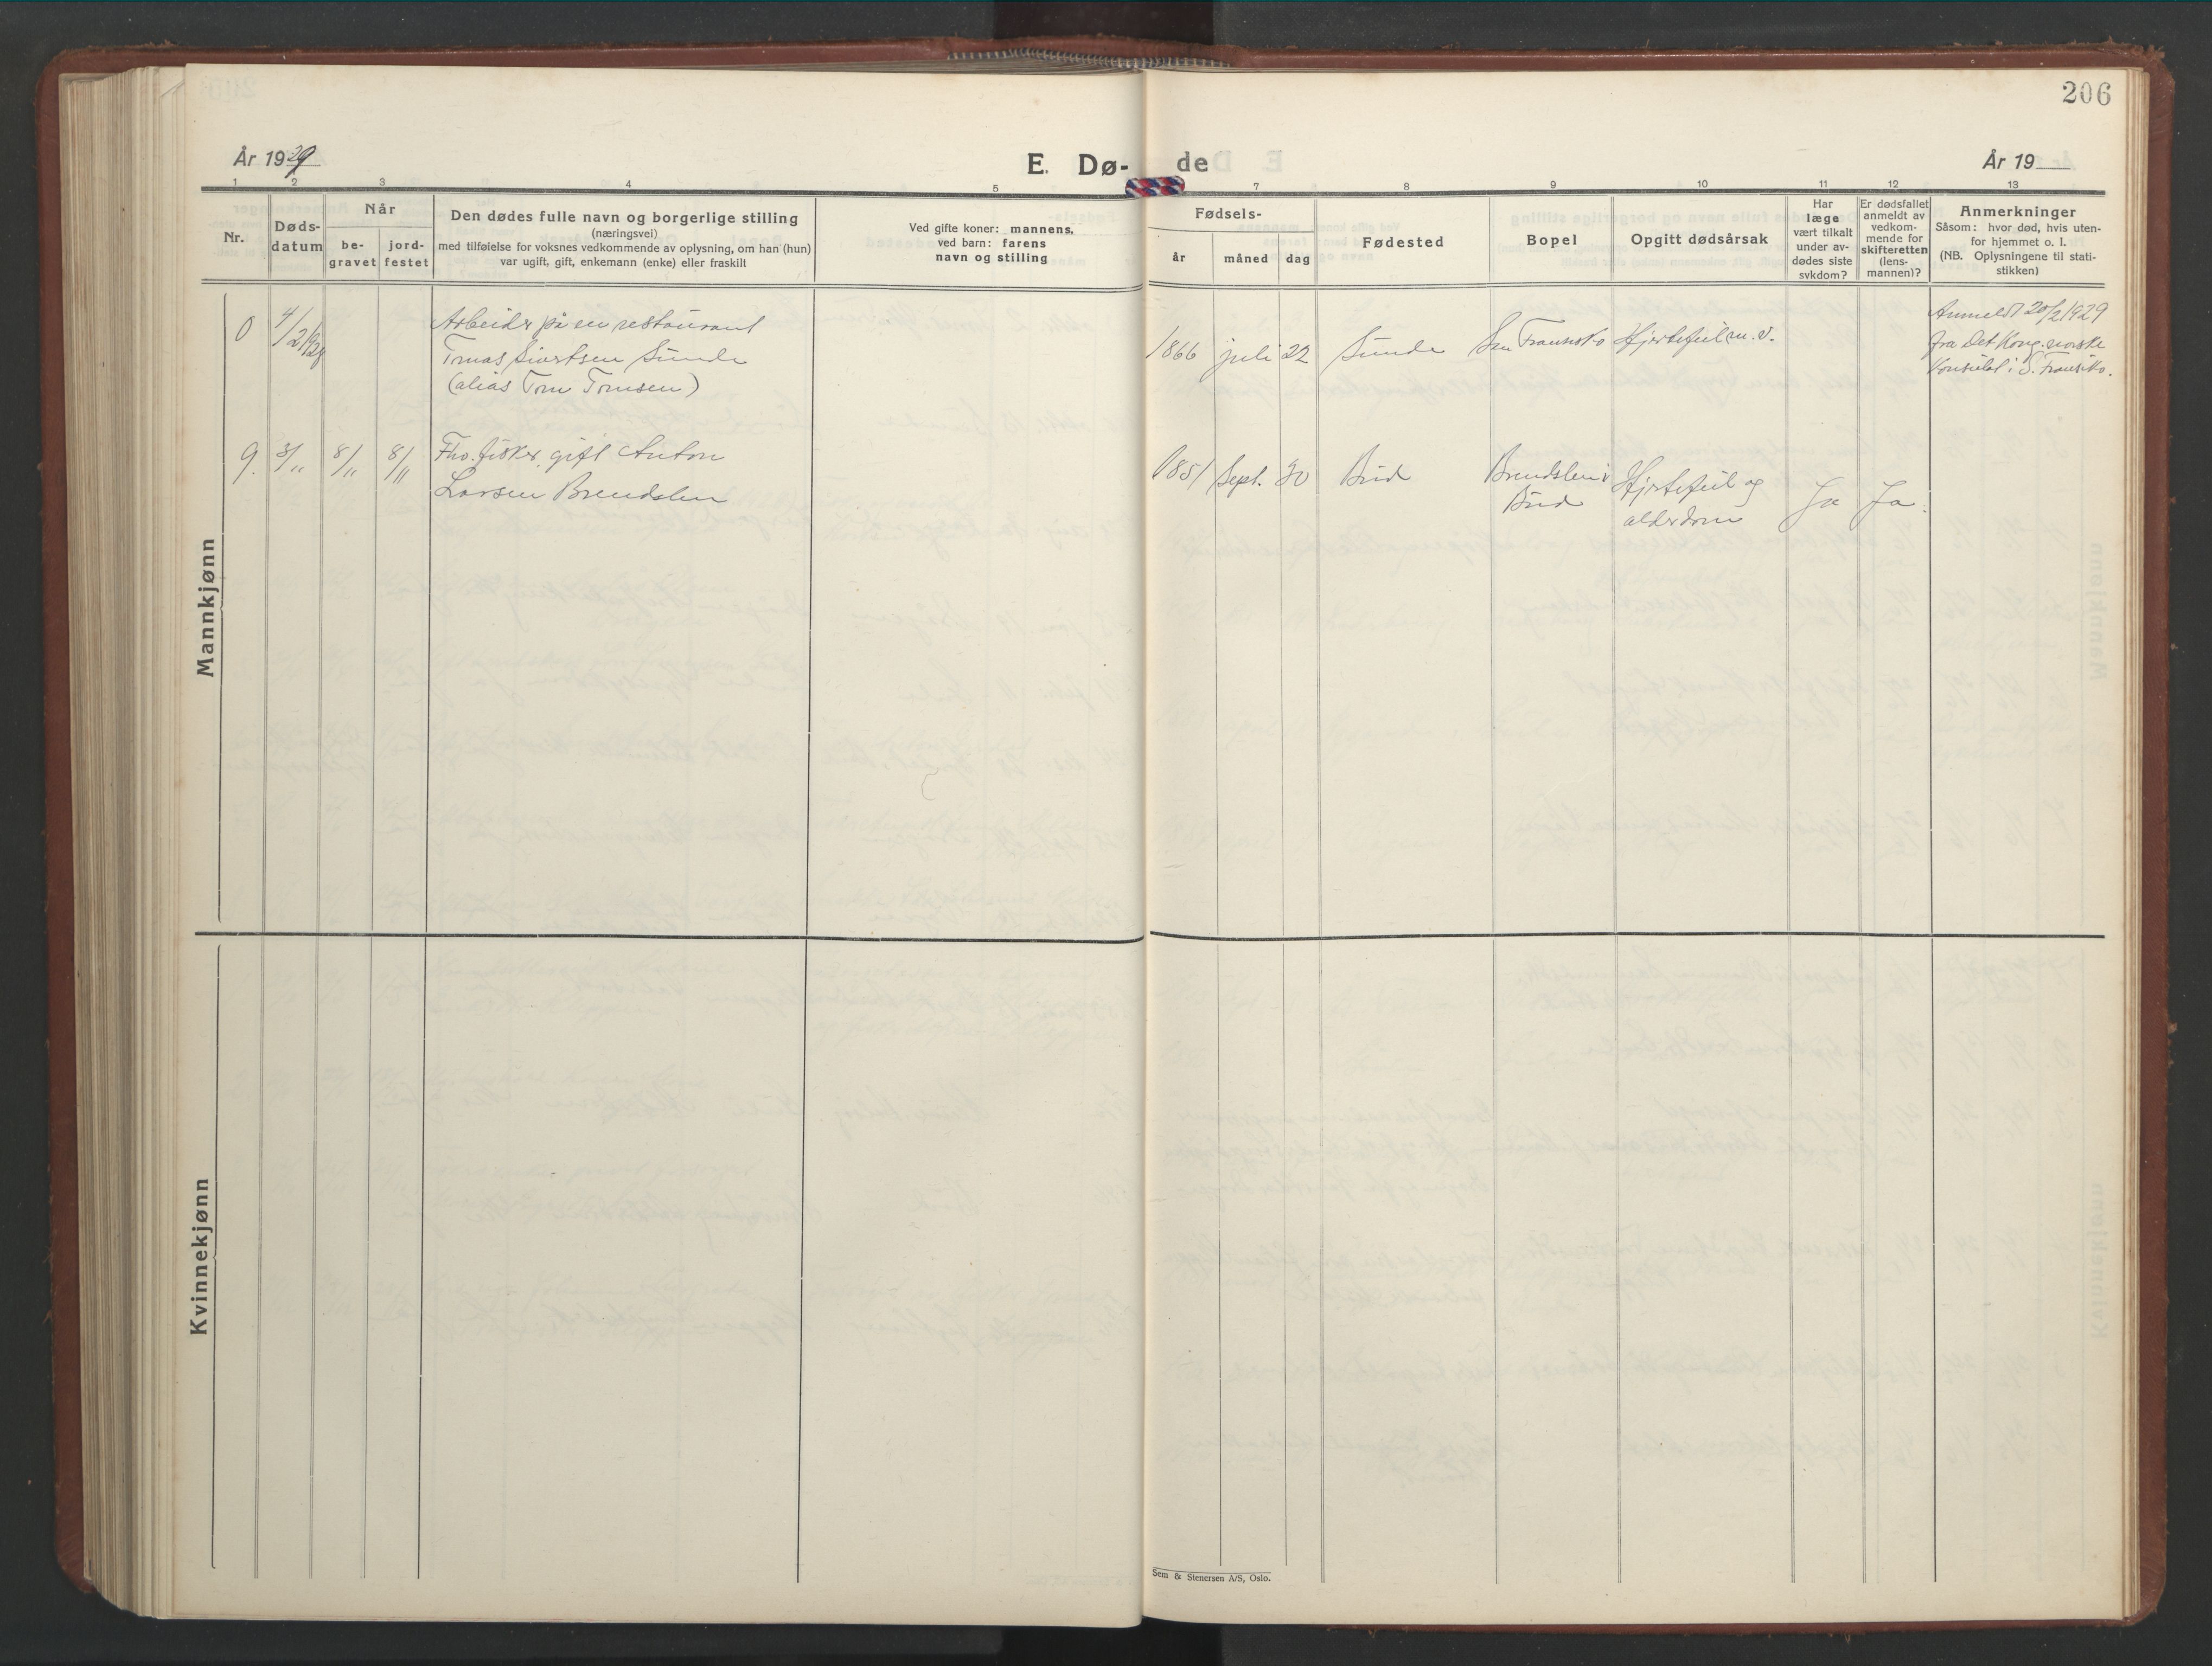 206
År 1929
E. Dø-
de
År 19
1 2 3 4 5 7 8 9 10 11 12 13
Nr.
Døds-
datum
Når
be-
gravet
jord-
festet
Den dødes fulle navn og borgerlige stilling
(næringsvei)
med tilføielse for voksnes vedkommende av oplysning, om han (hun)
var ugift, gift, enkemann (enke) eller fraskilt
Ved gifte koner: mannens,
ved barn: farens
navn og stilling
Fødsels-
år
måned
dag
Fødested
Bopel
Opgitt dødsårsak
Har
læge
vært tilkalt
under av-
dødes siste
sykdom?
Er dødsfallet
anmeldt av
vedkom-
mende for
skifteretten
(lens-
mannen)?
Anmerkninger
Såsom: hvor død, hvis uten-
for hjemmet o. l.
(NB. Oplysningene til stati-
stikken)
Mannkjønn
0 4/2 1929 Arbeider på en restaurant
Tomas Sivertsen Sunde
(alias Tom Tomsen)
1866 juli 22 Sunde San Fransisko Hjertefeil m. v.
Anmeldt 20/2 1929
fra Det Kong. norske
Konsulat i S. Fransisko.
9. 3/11 8/11 8/11 Fhv. fisker, gift Anton
Larsen Breivikslien
1851 Sept. 30 Bud
Bud
Hjertefeil og
alderdom
Ja Ja.
Kvinnekjønn
Sem & Stenersen A/S, Oslo.